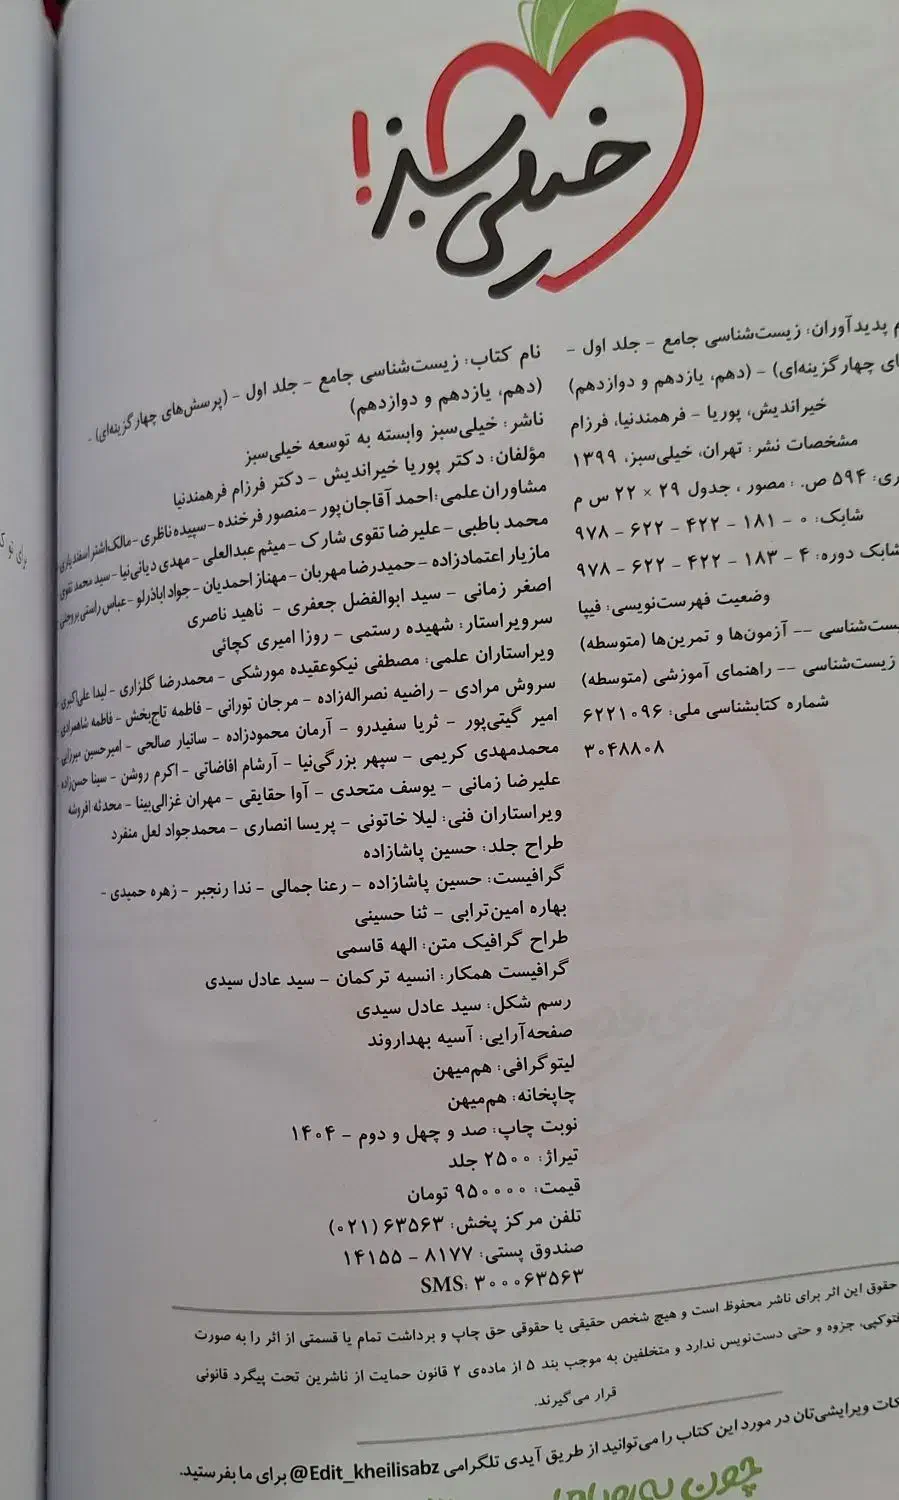 خیلی سبز!
پدیدآوران: زیست‌شناسی جامع - جلد اول -
چهارگزینه‌ای) - (دهم، یازدهم و دوازدهم)
خیراندیش، پوریا - فرهمندنیا، فرزام
مشخصات نشر: تهران، خیلی‌سبز، ۱۳۹۹
۵۹۴ ص.: مصور، جدول ۲۹ × ۲۲ س م
شابک: ۰ - ۱۸۱ - ۴۲۲ - ۶۲۲ - ۹۷۸
شابک دوره: ۴ - ۱۸۳ - ۴۲۲ - ۶۲۲ - ۹۷۸
وضعیت فهرست‌نویسی: فیپا
یست‌شناسی -- آزمون‌ها و تمرین‌ها (متوسطه)
زیست‌شناسی -- راهنمای آموزشی (متوسطه)
شماره کتابشناسی ملی: ۶۲۲۱۰۹۶
۳۰۴۸۸۰۸
نام کتاب: زیست‌شناسی جامع - جلد اول - (پرسش‌های چهارگزینه‌ای) -
(دهم، یازدهم و دوازدهم)
ناشر: خیلی‌سبز وابسته به توسعه خیلی‌سبز
مؤلفان: دکتر پوریا خیراندیش - دکتر فرزام فرهمندنیا
مشاوران علمی: احمد آقاجان‌پور - منصور فرخنده - سپیده ناظری - مالک‌اشتر اسفندیاری -
محمد باطبی - علیرضا تقوی شارک - میثم عبدالعلی - مهدی دیانی‌نیا - سید محمد تقوی
مازیار اعتمادزاده - حمیدرضا مهربان - مهناز احمدیان - جواد اباذرلو - عباس راستی بروجنی -
اصغر زمانی - سید ابوالفضل جعفری - ناهید ناصری
سرویراستار: شهیده رستمی - روزا امیری کچائی
ویراستاران علمی: مصطفی نیکوعقیده مورشکی - محمدرضا گلزاری - لیدا علی‌اکبری -
سروش مرادی - راضیه نصراله‌زاده - مرجان تورانی - فاطمه تاج‌بخش - فاطمه شاهمرادی -
امیر گیتی‌پور - ثریا سفیدرو - آرمان محمودزاده - سانیار صالحی - امیرحسین میرزایی -
محمدمهدی کریمی - سپهر بزرگی‌نیا - آرشام افاضاتی - اکرم روشن - سینا حسن‌زاده -
علیرضا زمانی - یوسف متحدی - آوا حقایقی - مهران غزالی‌بینا - محدثه افروشه
ویراستاران فنی: لیلا خاتونی - پریسا انصاری - محمدجواد لعل منفرد
طراح جلد: حسین پاشازاده
گرافیست: حسین پاشازاده - رعنا جمالی - ندا رنجبر - زهره حمیدی -
بهاره امین‌ترابی - ثنا حسینی
طراح گرافیک متن: الهه قاسمی
گرافیست همکار: انسیه ترکمان - سید عادل سیدی
رسم شکل: سید عادل سیدی
صفحه‌آرایی: آسیه بهداروند
لیتوگرافی: هم‌میهن
چاپخانه: هم‌میهن
نوبت چاپ: صد و چهل و دوم - ۱۴۰۴
تیراژ: ۲۵۰۰ جلد
قیمت: ۹۵۰۰۰۰ تومان
تلفن مرکز پخش: ۶۳۵۶۳ (۰۲۱)
صندوق پستی: ۸۱۷۷ - ۱۴۱۵۵
SMS: ۳۰۰۰۶۳۵۶۳
حقوق این اثر برای ناشر محفوظ است و هیچ شخص حقیقی یا حقوقی حق چاپ و برداشت تمام یا قسمتی از اثر را به صورت
فتوکپی، جزوه و حتی دست‌نویس ندارد و متخلفین به موجب بند ۵ از ماده‌ی ۲ قانون حمایت از ناشرین تحت پیگرد قانونی
قرار می‌گیرند.
کات ویرایشی‌تان در مورد این کتاب را می‌توانید از طریق آیدی تلگرامی Edit_kheilisabz@ برای ما بفرستید.